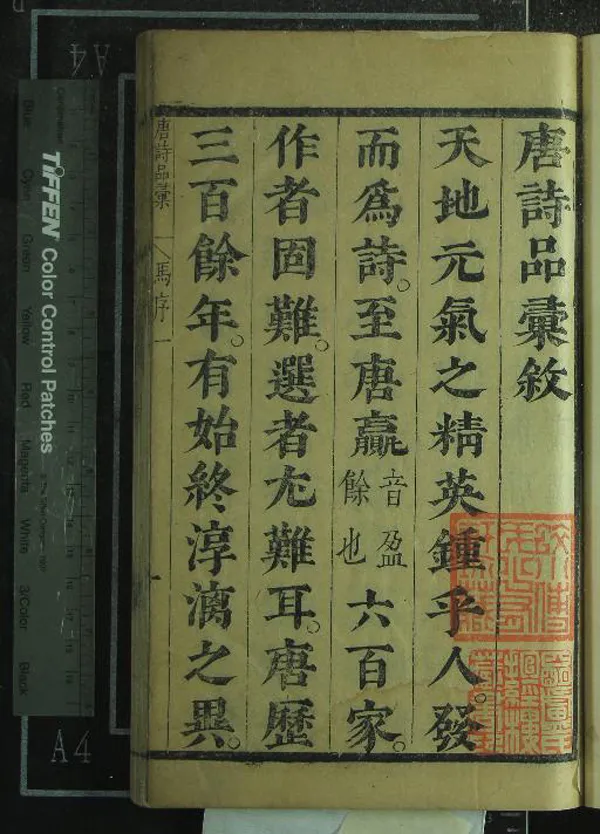 唐詩品彙敘
天地元氣之精英鍾乎人。發
而爲詩。至唐贏音盈餘也六百家。
作者固難。選者尤難耳。唐歷
三百餘年。有始終淳漓之異。
唐詩品彙 馬序 一
A4
A4
TIFFEN Color Control Patches
Blue
Cyan
Green
Yellow
Red
Magenta
White
3/Color
Black